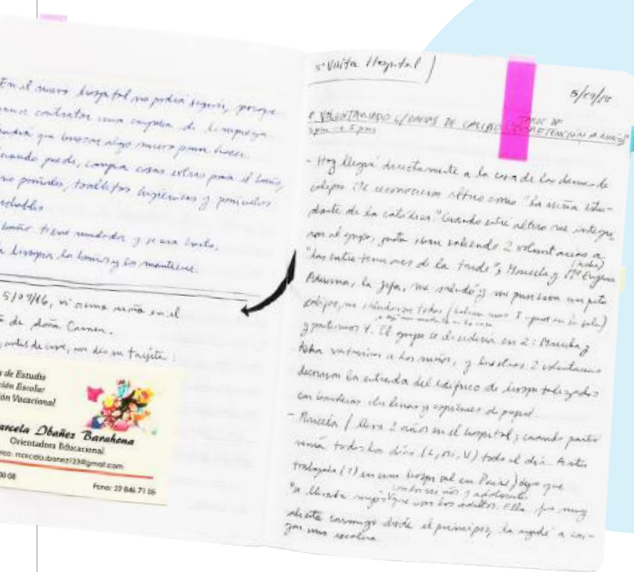 En el nuevo hospital no podrá seguir, porque
van a contratar una empresa de limpieza
tendrá que buscar algo nuevo para hacer.
Cuando puede, compra cosas extras para el baño,
toallitas higiénicas y pañuelos
desechables
baño tiene mudador y
limpia los baños y los mantiene.
5/07/16, vi a una niña en el
de doña Carmen.
antes de irse, me dio su tarjeta:
de Estudio
ción Escolar
ión Vocacional
arcela Ibáñez Barahona
Orientadora Educacional
marcela.ibanez123@gmail.com
00 08
Fono: 22 846 71 06
Visita Hospital
VOLUNTARIADO C/DAMAS DE CALIPSO
3 pm → 5 pm
- Hoy llegué directamente a la casa de las damas de
calipso. Me reconocieron altiro como "la niña estu-
diante de la católica". Cuando entré altiro me integra-
ron al grupo, justo iban saliendo 2 voluntarias a
"las entretenciones de la tarde"; Marcela y Mª Eugenia
la jefa, me saludó y me pusieron un peto
calipso, me saludaron todas
y partimos 4. El grupo se dividía en 2: Marcela y
a los niños, y las otras 2 voluntarias
decoraron la entrada del edificio de hospitalizados
con banderas chilenas y de papel.
- Marcela / lleva 2 años en el hospital, cuando partió
venía todos los días (L, Mi, V) todo el día. Antes
trabajaba (?) en un hospital en París) dijo que
con los niños y adolescentes
"se llevaba mejor que con los adultos. Ella fue muy
abierta conmigo desde el principio, la ayudé a car-
gar una escalera.